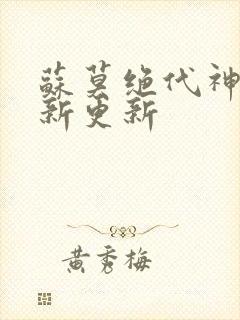 蘇莫绝代神
新更新
黄秀梅